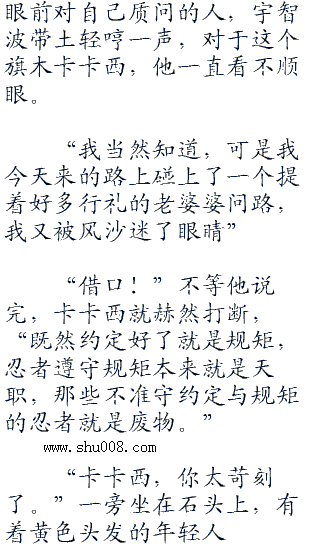 眼前对自己质问的人，宇智
波带土轻哼一声，对于这个
旗木卡卡西，他一直看不顺
眼。
“我当然知道，可是我
今天来的路上碰上了一个提
着好多行礼的老婆婆问路，
我又被风沙迷了眼睛”
“借口！”不等他说
完，卡卡西就赫然打断，
“既然约定好了就是规矩，
忍者遵守规矩本来就是天
职，那些不准守约定与规矩
的忍者就是废物。”
www.shu008.com
“卡卡西，你太苛刻
了。”一旁坐在石头上，有
着黄色头发的年轻人